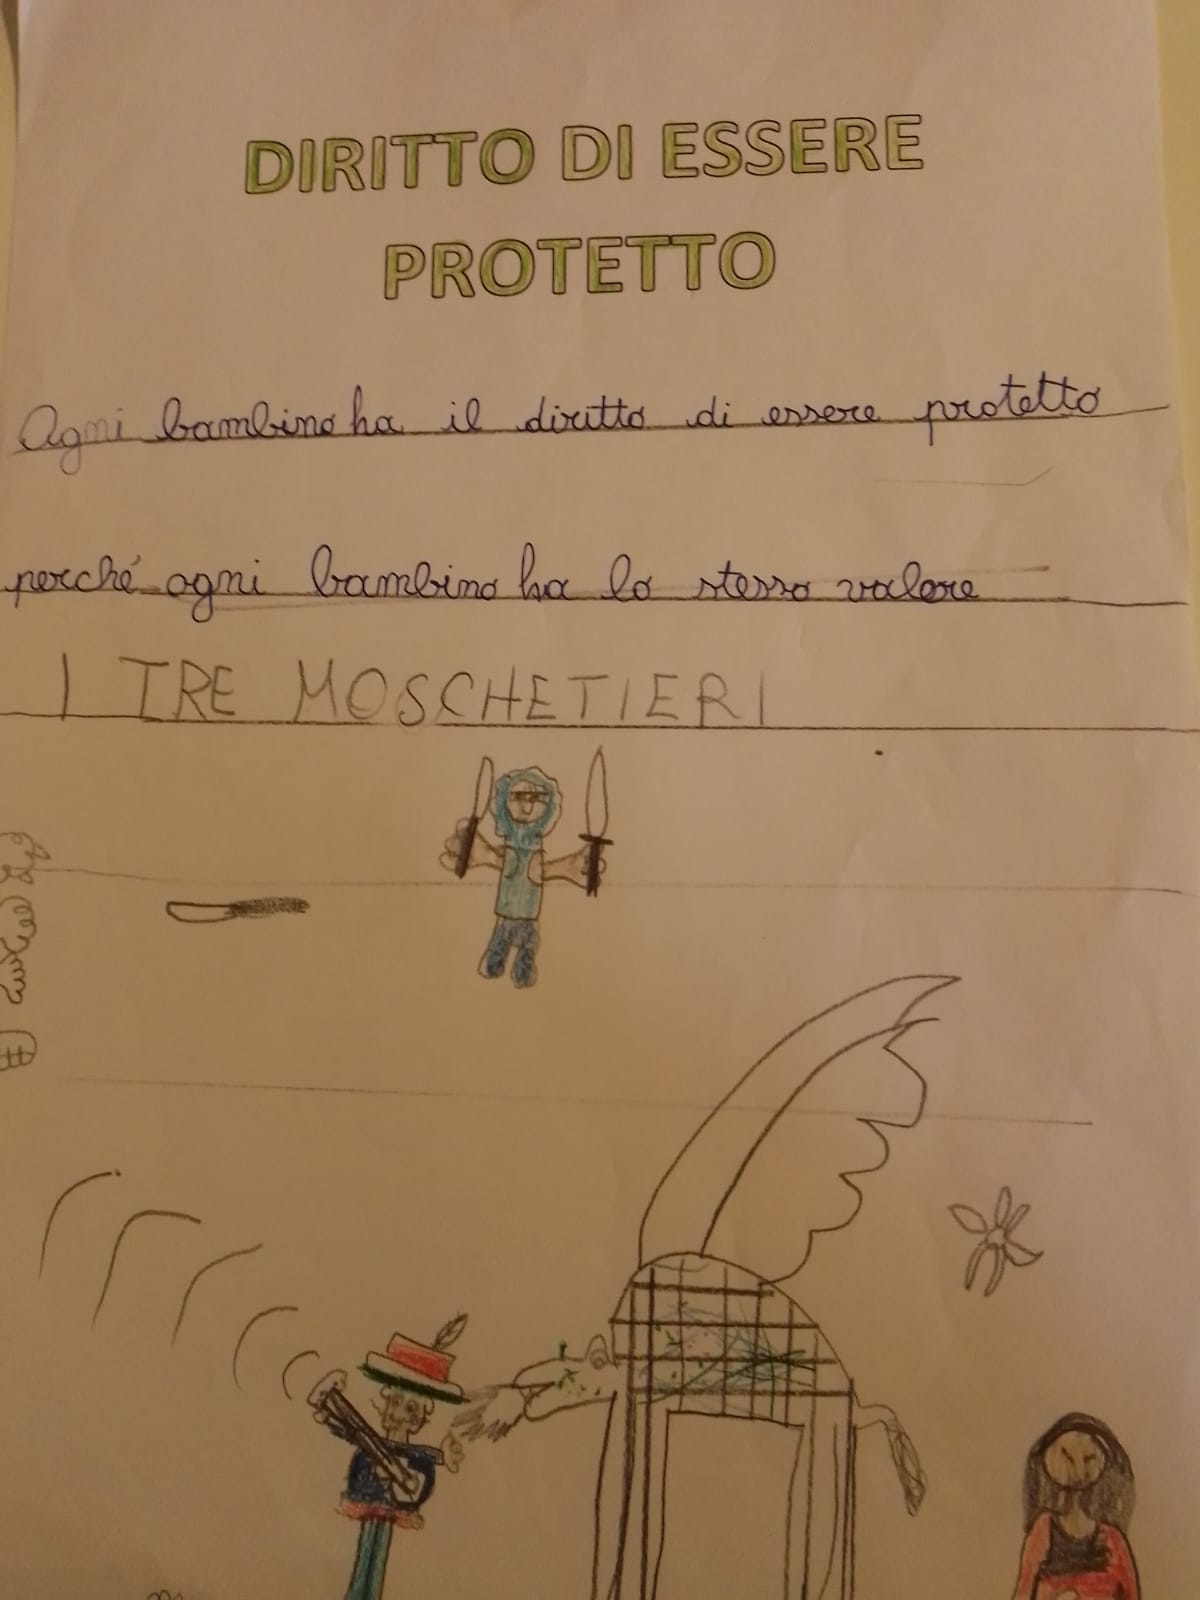 DIRITTO DI ESSERE
PROTETTO
Ogni bambino ha il diritto di essere protetto
perché ogni bambino ha lo stesso valore
I TRE MOSCHETIERI